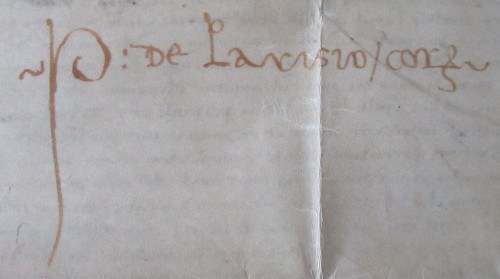 ~P: de Parisio/corꝫ~